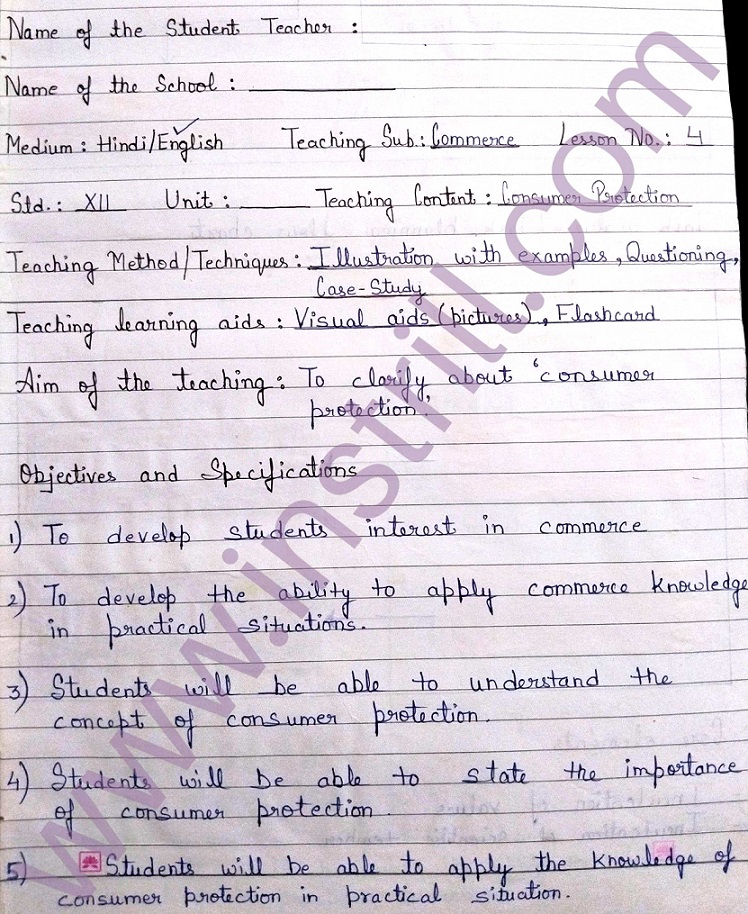 Name of the Student Teacher :
Name of the School :
Medium : Hindi/English Teaching Sub.: Commerce Lesson No.: 4
Std.: XII Unit : Teaching Content : Consumer Protection
Teaching Method/Techniques : Illustration with examples, Questioning,
Case-Study
Teaching learning aids : Visual aids (pictures), Flashcard
Aim of the teaching : To clarify about 'consumer
protection'
Objectives and Specifications
1) To develop students interest in commerce
2) To develop the ability to apply commerce knowledge
in practical situations.
3) Students will be able to understand the
concept of consumer protection.
4) Students will be able to state the importance
of consumer protection.
5) Students will be able to apply the knowledge of
consumer protection in practical situation.
www.instrill.com